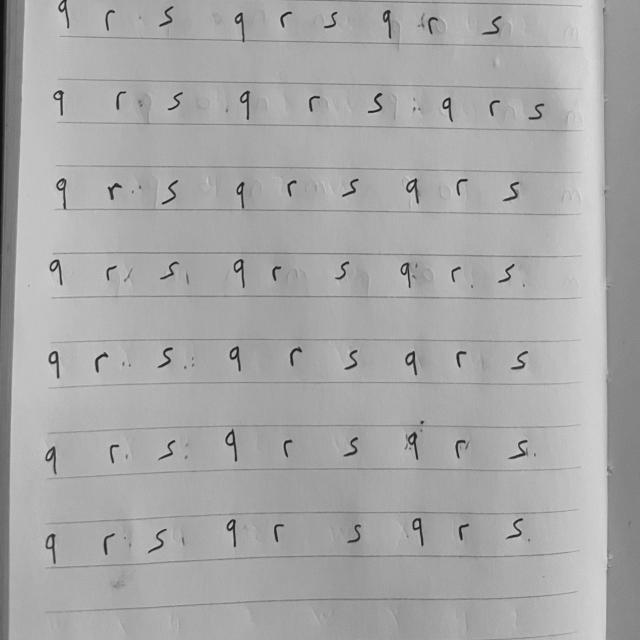 q r s q r s q r s
q r s q r s q r s
q r s q r s q r s
q r s q r s q r s
q r s q r s q r s
q r s q r s q r s
q r s q r s q r s